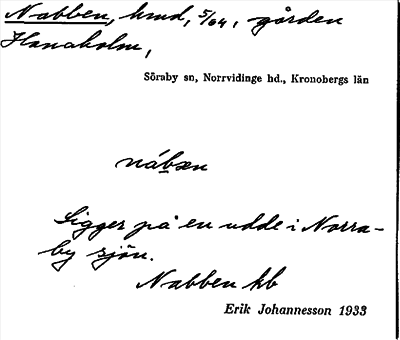 Nabben, hmd, 5/64, gården
Hanaholm,
Söraby sn, Norrvidinge hd., Kronobergs län
nábæn
Ligger på en udde i Norra-
by sjön.
Nabben kb
Erik Johannesson 1933